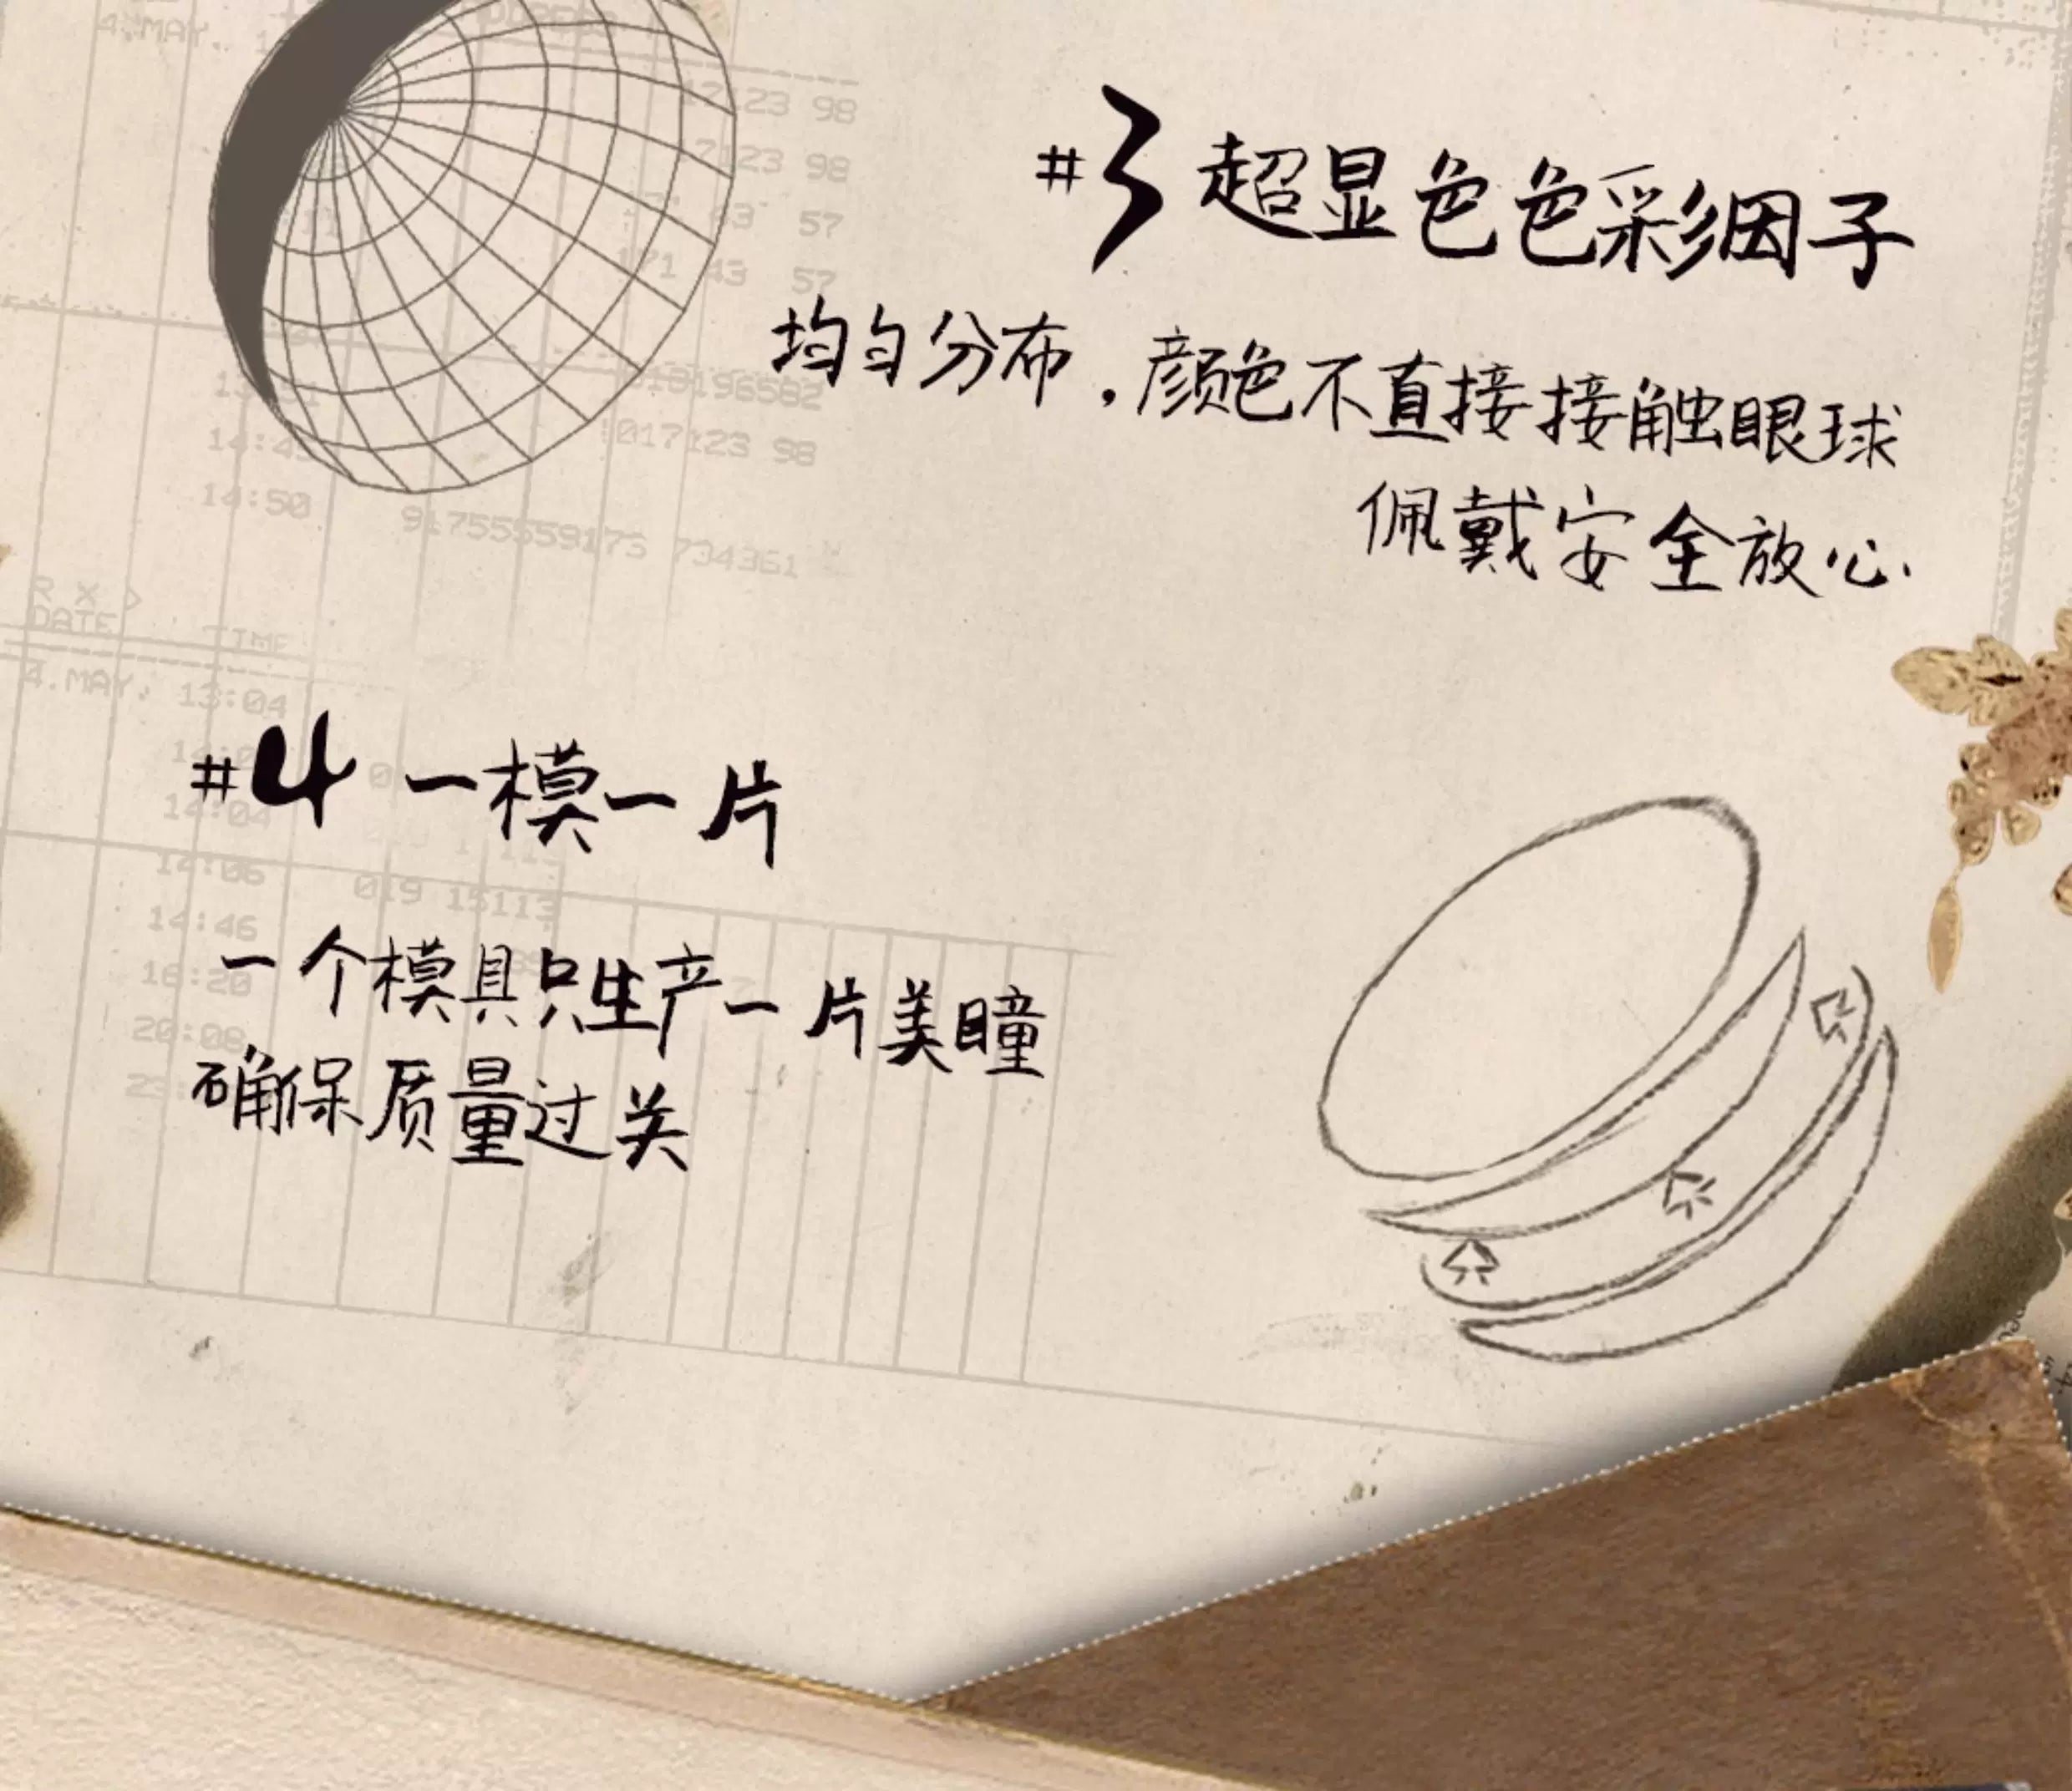 #3 超显色色彩因子
均匀分布，颜色不直接接触眼球
佩戴安全放心
#4 一模一片
一个模具只生产一片美瞳
确保质量过关
4.MAY.
17123 98
17123 98
57
57
017123 98
14:50
91755559175 734361
R X >
DATE TIME
4.MAY. 13:04
14:04
14:06 019 15113
14:46
16:20
20:08